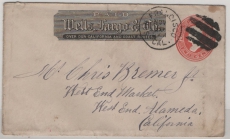 PAID
Wells, Fargo & Co.
OVER OUR CALIFORNIA AND COAST ROUTES
CAL.
Mr Chris Kremer Jr
West End Market,
West End, Alameda,
California